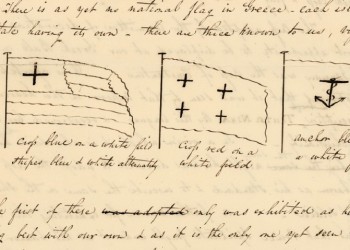 There is as yet no national flag in Greece - each
state having its own - there are three known to us,
Crop blue on a white field
stripes blue & white alternately
Crop red on a
white field
anchor blue
a white
first of these was adopted only was exhibited as
best with our own & as it is the only one yet seen